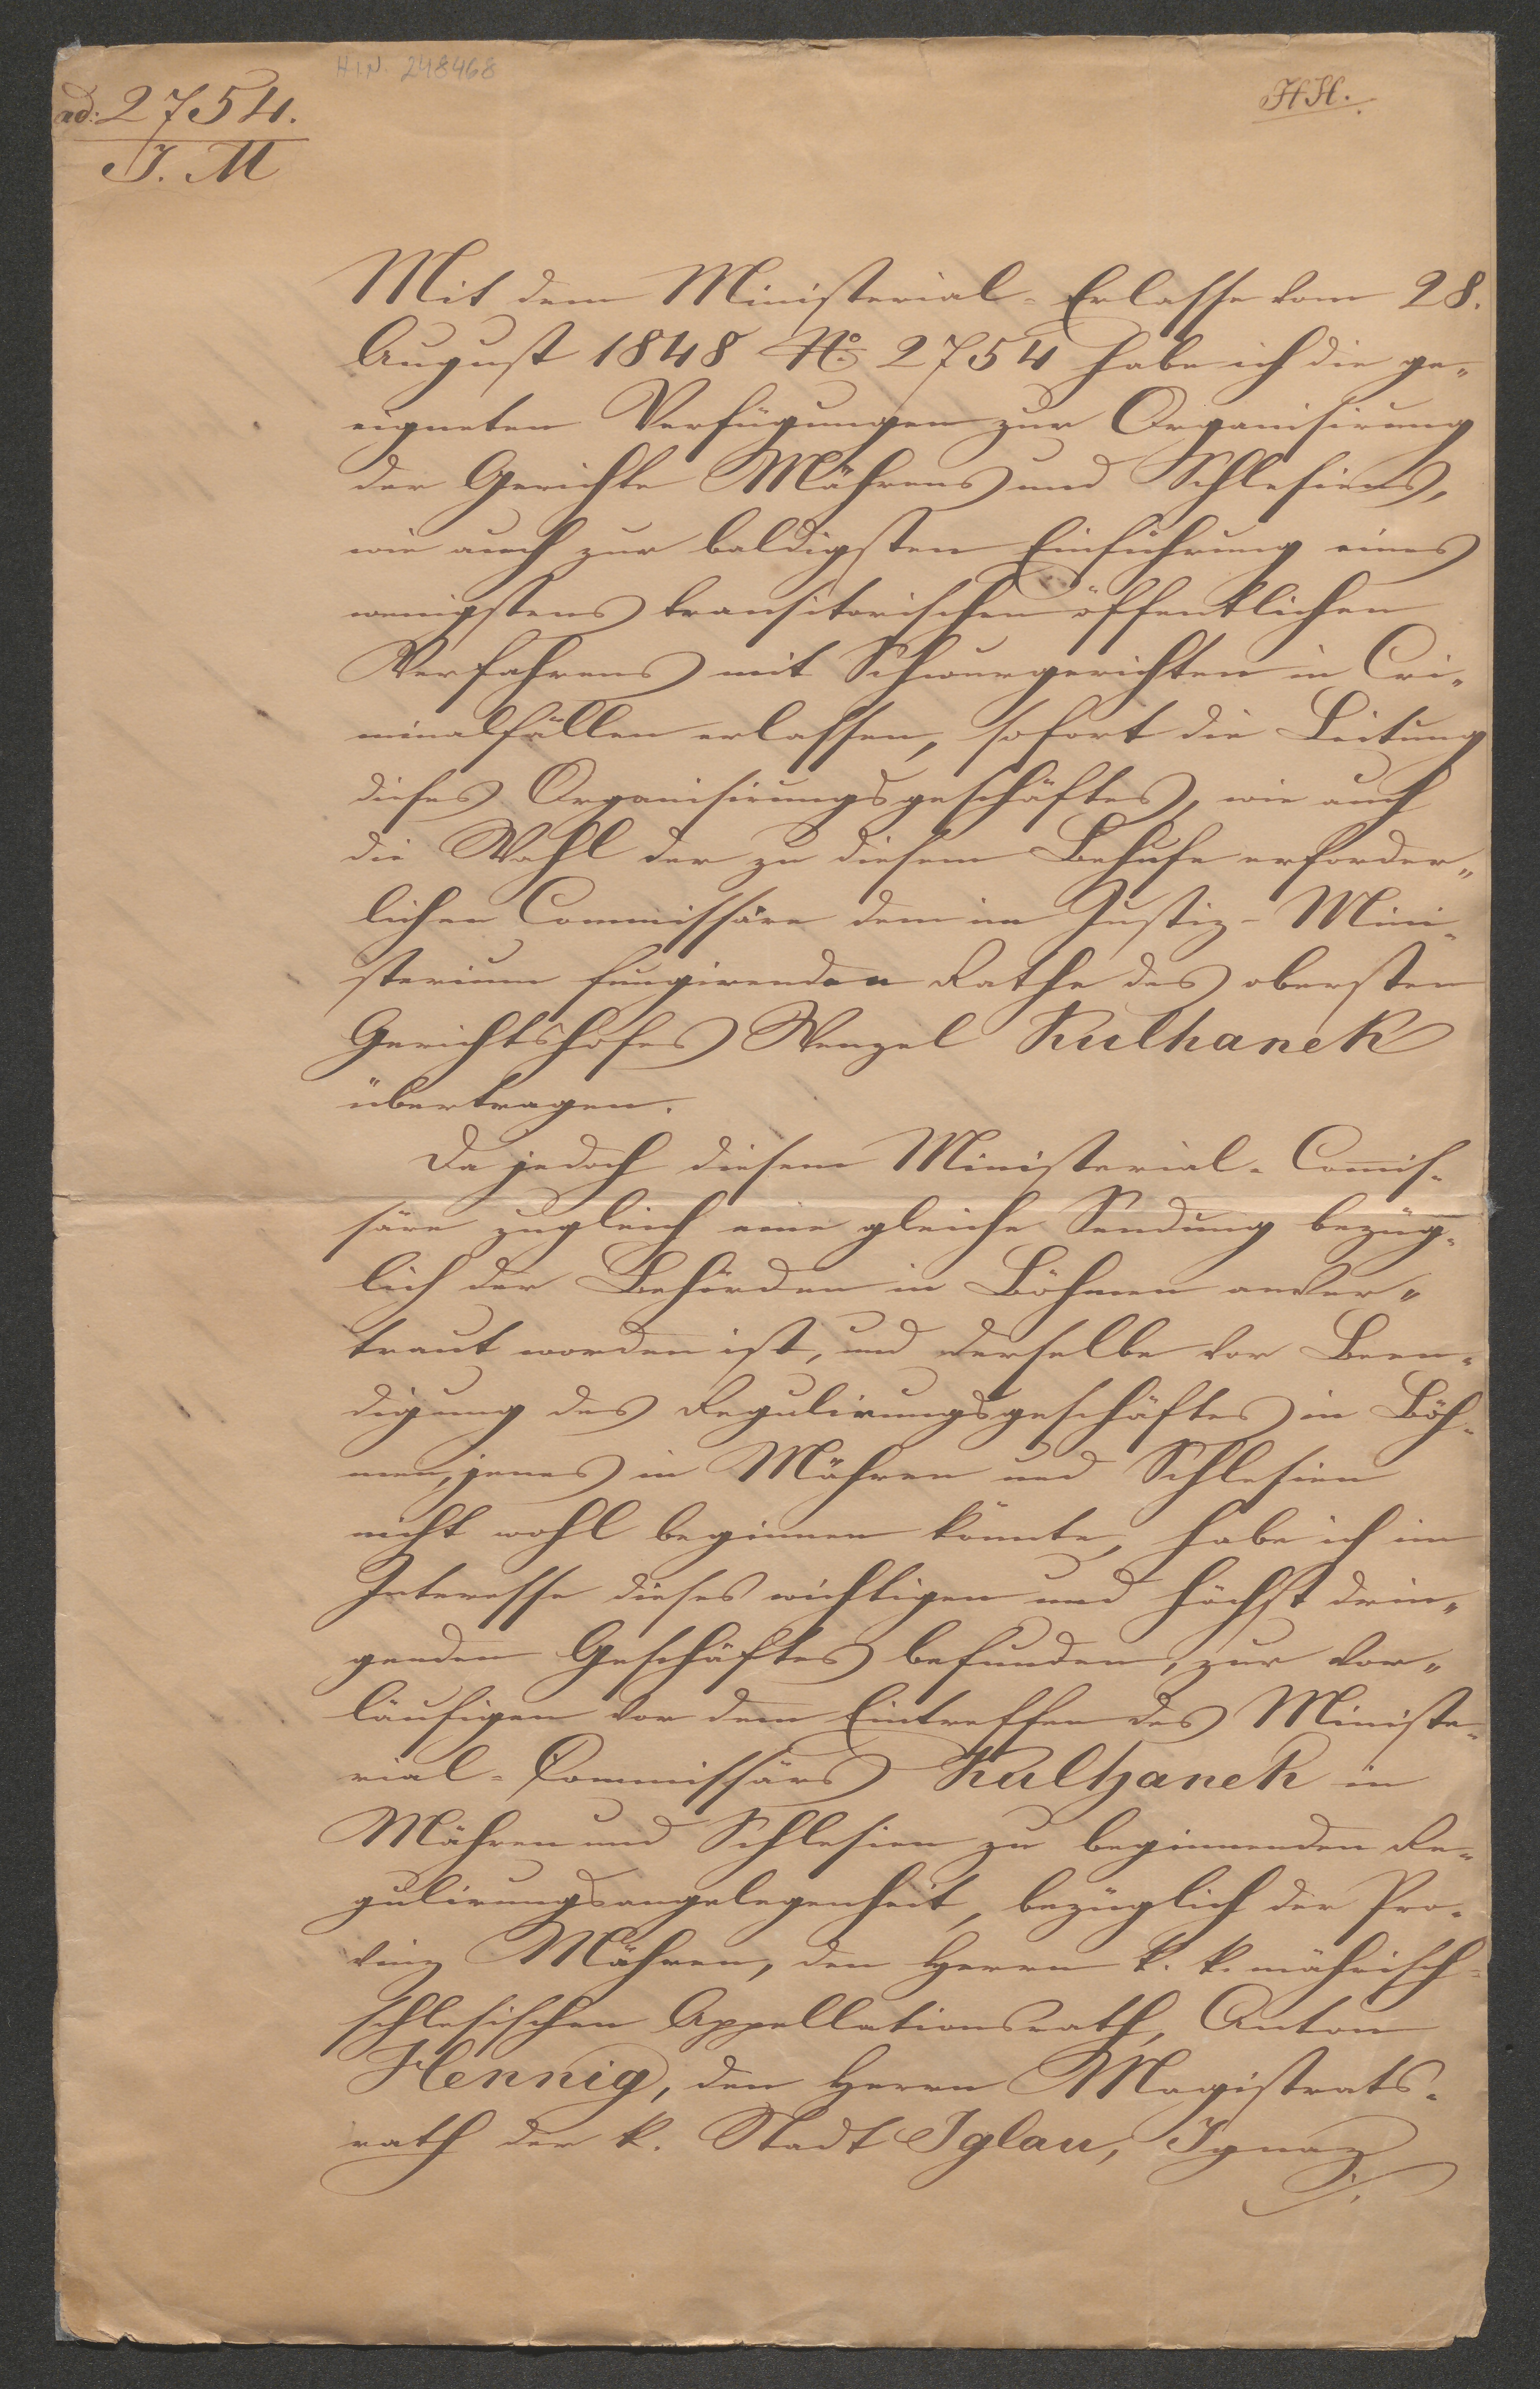 H.I.N. 248468
ad: 2754.
J. M
Mit dem Ministerial-Erlasse vom 28.
August 1848 No. 2754 habe ich die ge„
eigneten Verfügungen zur Organisirung
der Gerichte Mährens und Schlesiens,
wie auch zur baldigsten Einführung eines
wenigstens transitorischen öffentlichen
Verfahrens mit Schwurgerichten in Cri„
minalfällen erlassen, sofort die Leitung
dieses Organisirungsgeschäftes, wie auch
die Wahl der zu diesem Behufe erforder„
lichen Commissäre dem im Justiz-Mini-
sterium fungirenden Rathe des obersten
Gerichtshofes Wenzel Kulhanek
übertragen.
Da jedoch diesem Ministerial-Com̅is-
säre zugleich eine gleiche Sendung bezüg-
lich der Behörden in Böhmen anver„
traut worden ist, und derselbe vor Been-
digung des Regulirungsgeschäftes in Böh-
men, jenes in Mähren und Schlesien
nicht wohl beginnen könnte, habe ich im
Interesse dieses wichtigen und höchst drin„
genden Geschäftes befunden, zur vor„
läufigen vor dem Eintreffen des Ministe-
rial-Commissärs Kulhanek in
Mähren und Schlesien zu beginnenden Re-
gulirungsangelegenheit, bezüglich der Pro-
vinz Mähren, den Herrn k. k. mährisch-
schlesischen Appellationsrath, Anton
Hennig, den Herrn Magistrats-
rath der k. Stadt Iglau, Ignaz